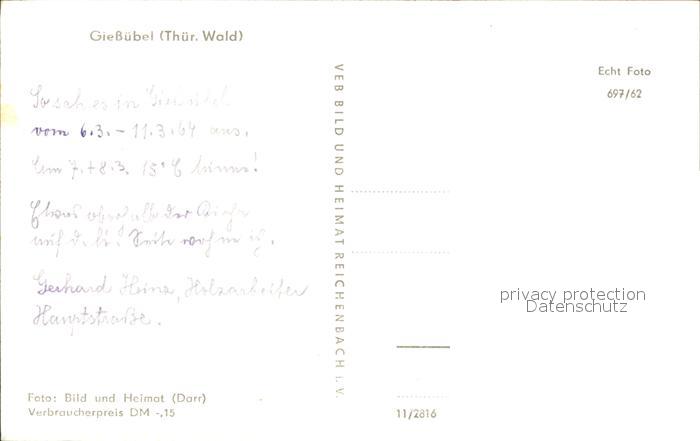 Gießübel (Thür. Wald)
So sah es in Gießübel
vom 6.3. - 11.3.64 aus.
Am 7.+8.3. 15°C
Etwas oberhalb der Kirche
auf d. li. Seite wohne ich.
Gerhard Heinz, Holzarbeiter
Hauptstraße.
Foto: Bild und Heimat (Darr)
Verbraucherpreis DM -,15
VEB BILD UND HEIMAT REICHENBACH i. V.
Echt Foto
697/62
privacy protection
Datenschutz
11/2816